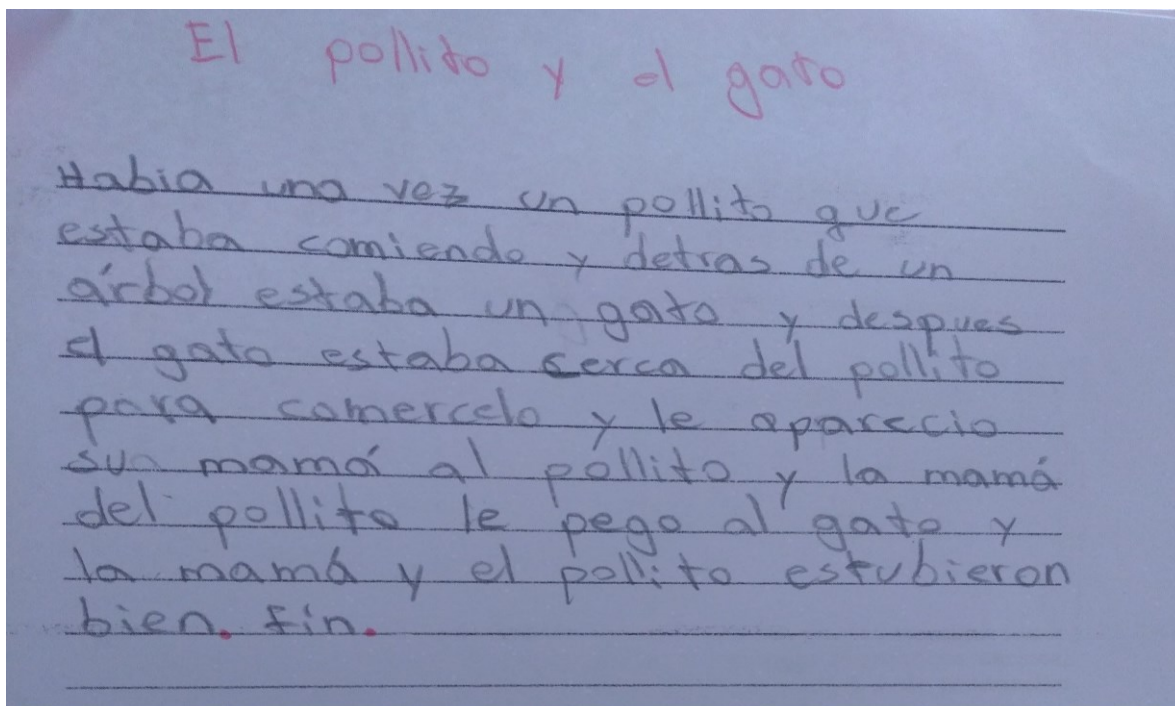 El pollito y el gato
Habia una vez un pollito que
estaba comiendo y detras de un
árbol estaba un gato y despues
el gato estaba serca del pollito
para comercelo y le aparecio
su mamá al pollito y la mamá
del pollito le pego al gato y
la mamá y el pollito estubieron
bien. fin.